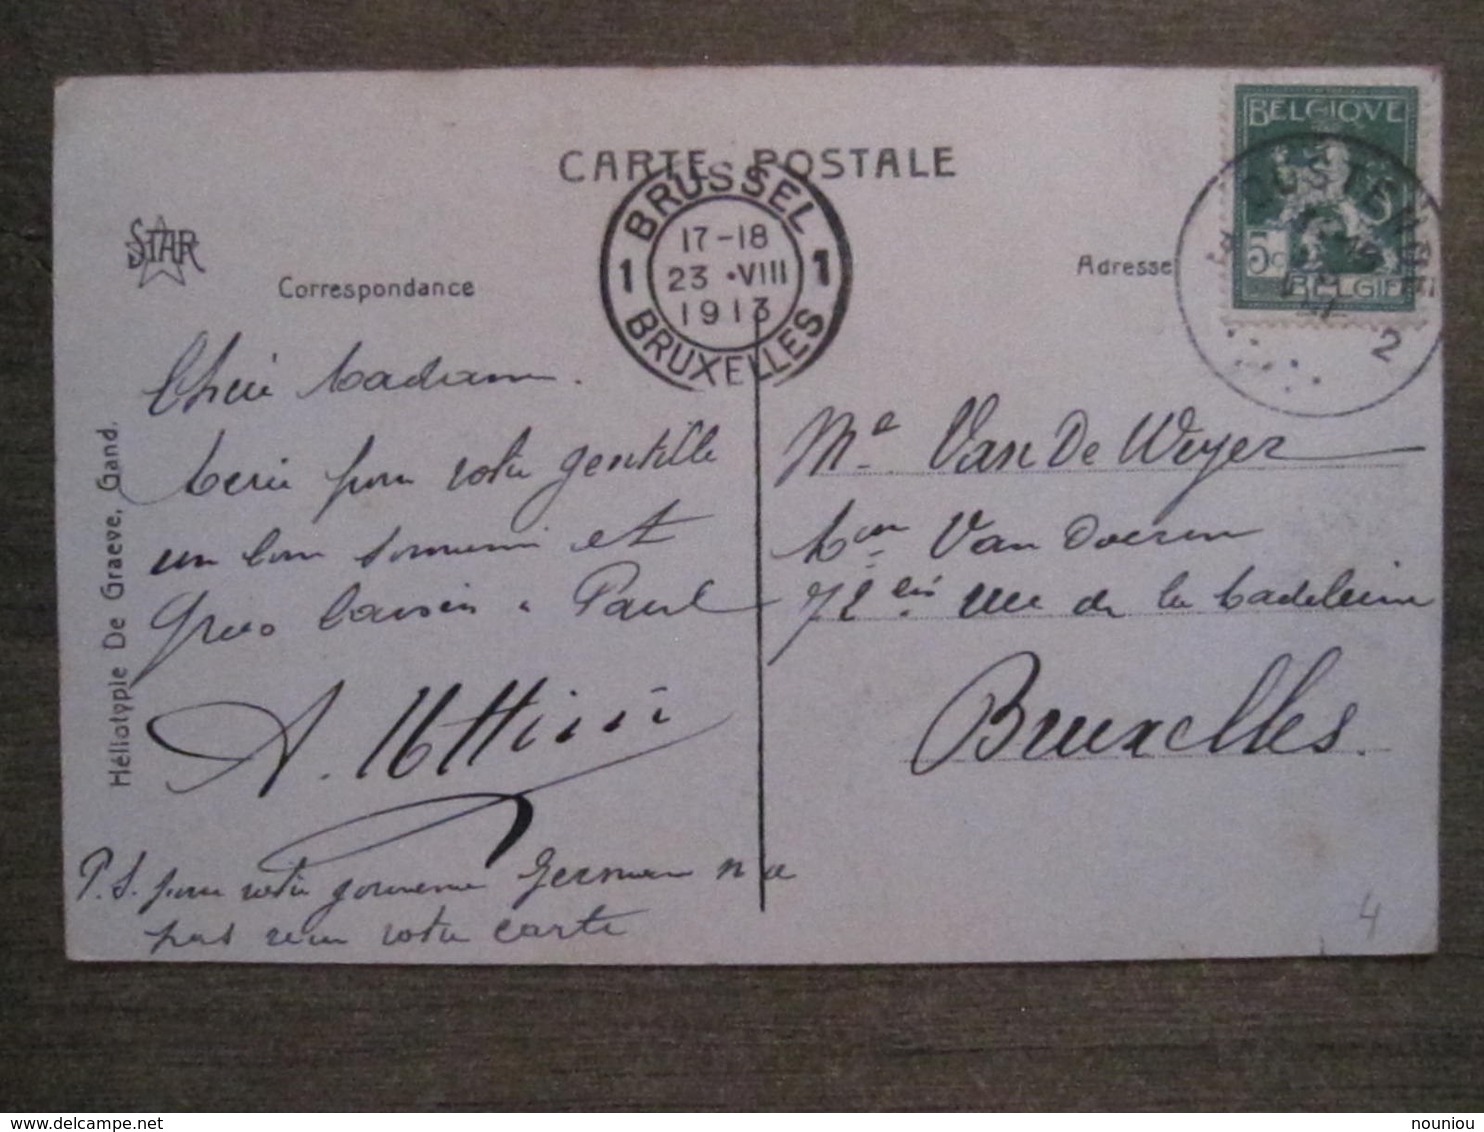 CARTE POSTALE
STAR
Correspondance
Adresse
BRUSSEL
1 17-18 1
23 ·VIII
1913
BRUXELLES
BELGIQUE
5c
BELGIË
2
Chère Madame.
Merci pour votre gentille
un bon souvenir et
gros baiser à Paul
A.
P.S. pour votre gouverne Germaine n'a
pas reçu votre carte
Me Van De Weyer
Mon Van Doeren
72 bis rue de la Madeleine
Bruxelles.
Héliotypie De Graeve, Gand.
4
nouniou